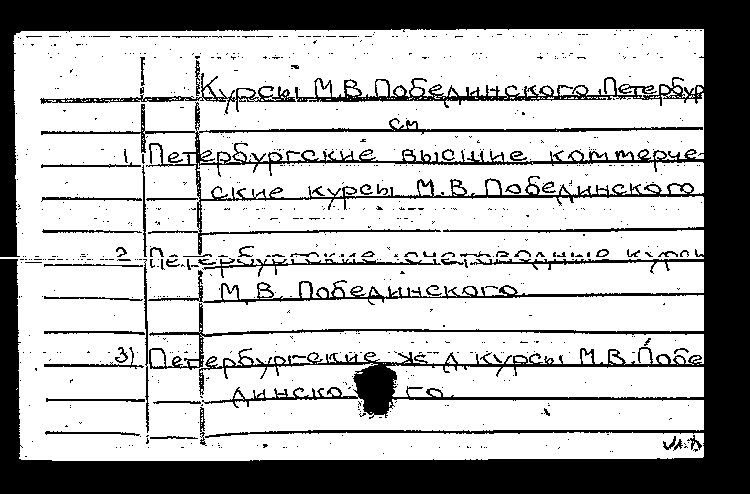 Курсы М.В. Побединского. Петербур
см.
1. Петербургские высшие коммерче-
ские курсы М.В. Побединского
2. Петербургские счетоводные курсы
М.В. Побединского.
3) Петербургские ж. д. курсы М.В. Побе
динского.